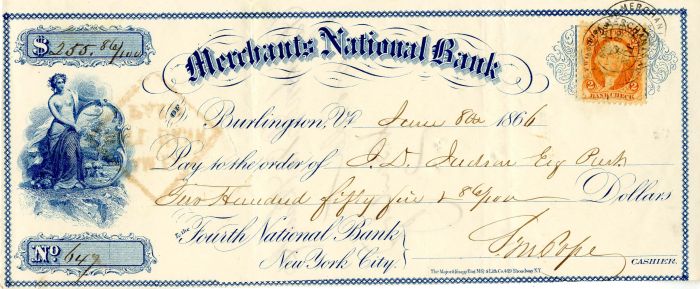 $ 255.86/100
Merchants National Bank
OF
Burlington, Vt. June 8th 1866
Pay to the order of J. D. Judson Esq
Two Hundred fifty five & 86/100 Dollars
To the Fourth National Bank
New York City.
CASHIER.
No 647
The Major & Knapp Eng. Mfg & Lith. Co. 449 Broadway N.Y.
2 BANK CHECK 2